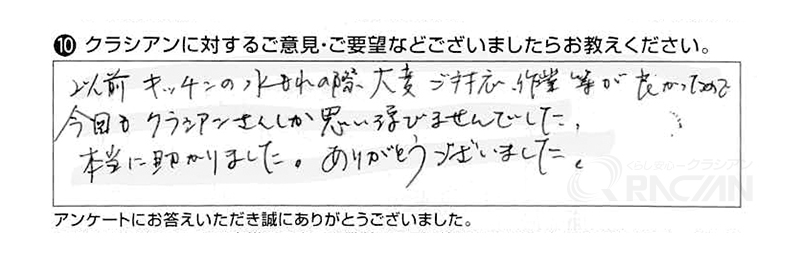 ⑩ クラシアンに対するご意見・ご要望などございましたらお教えください。
以前キッチンの水もれの際、大変ご対応、作業等が良かったので
今回もクラシアンさんしか思い浮びませんでした。
本当に助かりました。ありがとうございました。
くらし安心クラシアン
QRACIAN
アンケートにお答えいただき誠にありがとうございました。